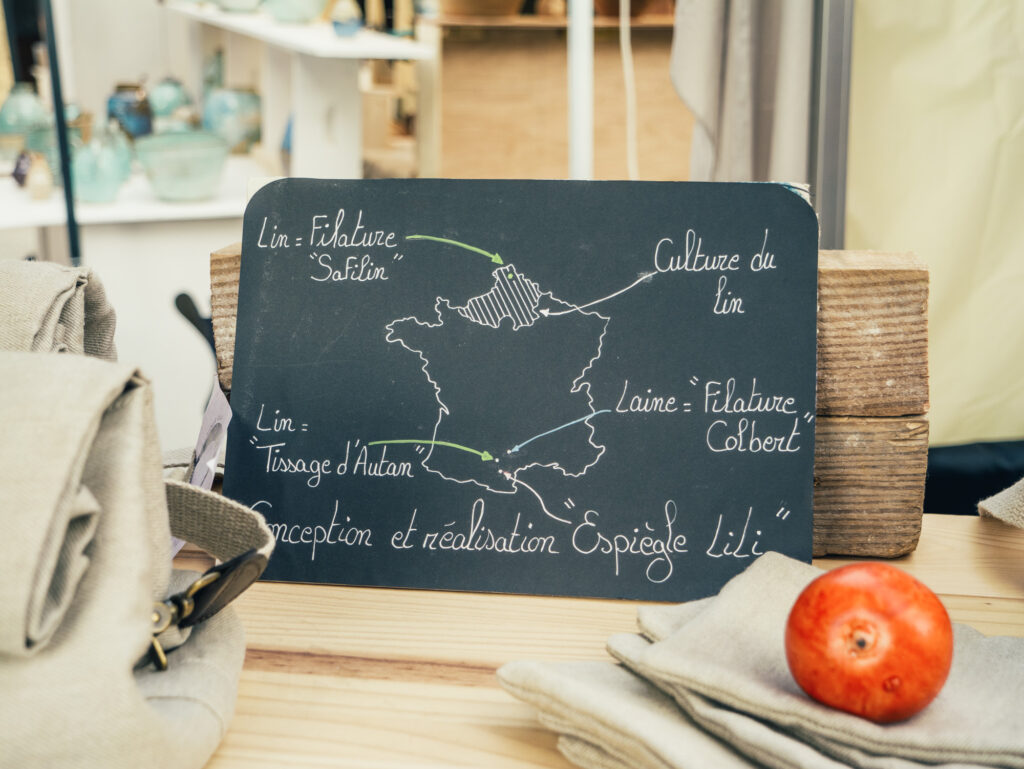 Lin = Filature
"Safilin"
Culture du
lin
Laine = "Filature
Colbert"
Lin =
"Tissage d'Autan"
Conception et réalisation "Espiègle LiLi"